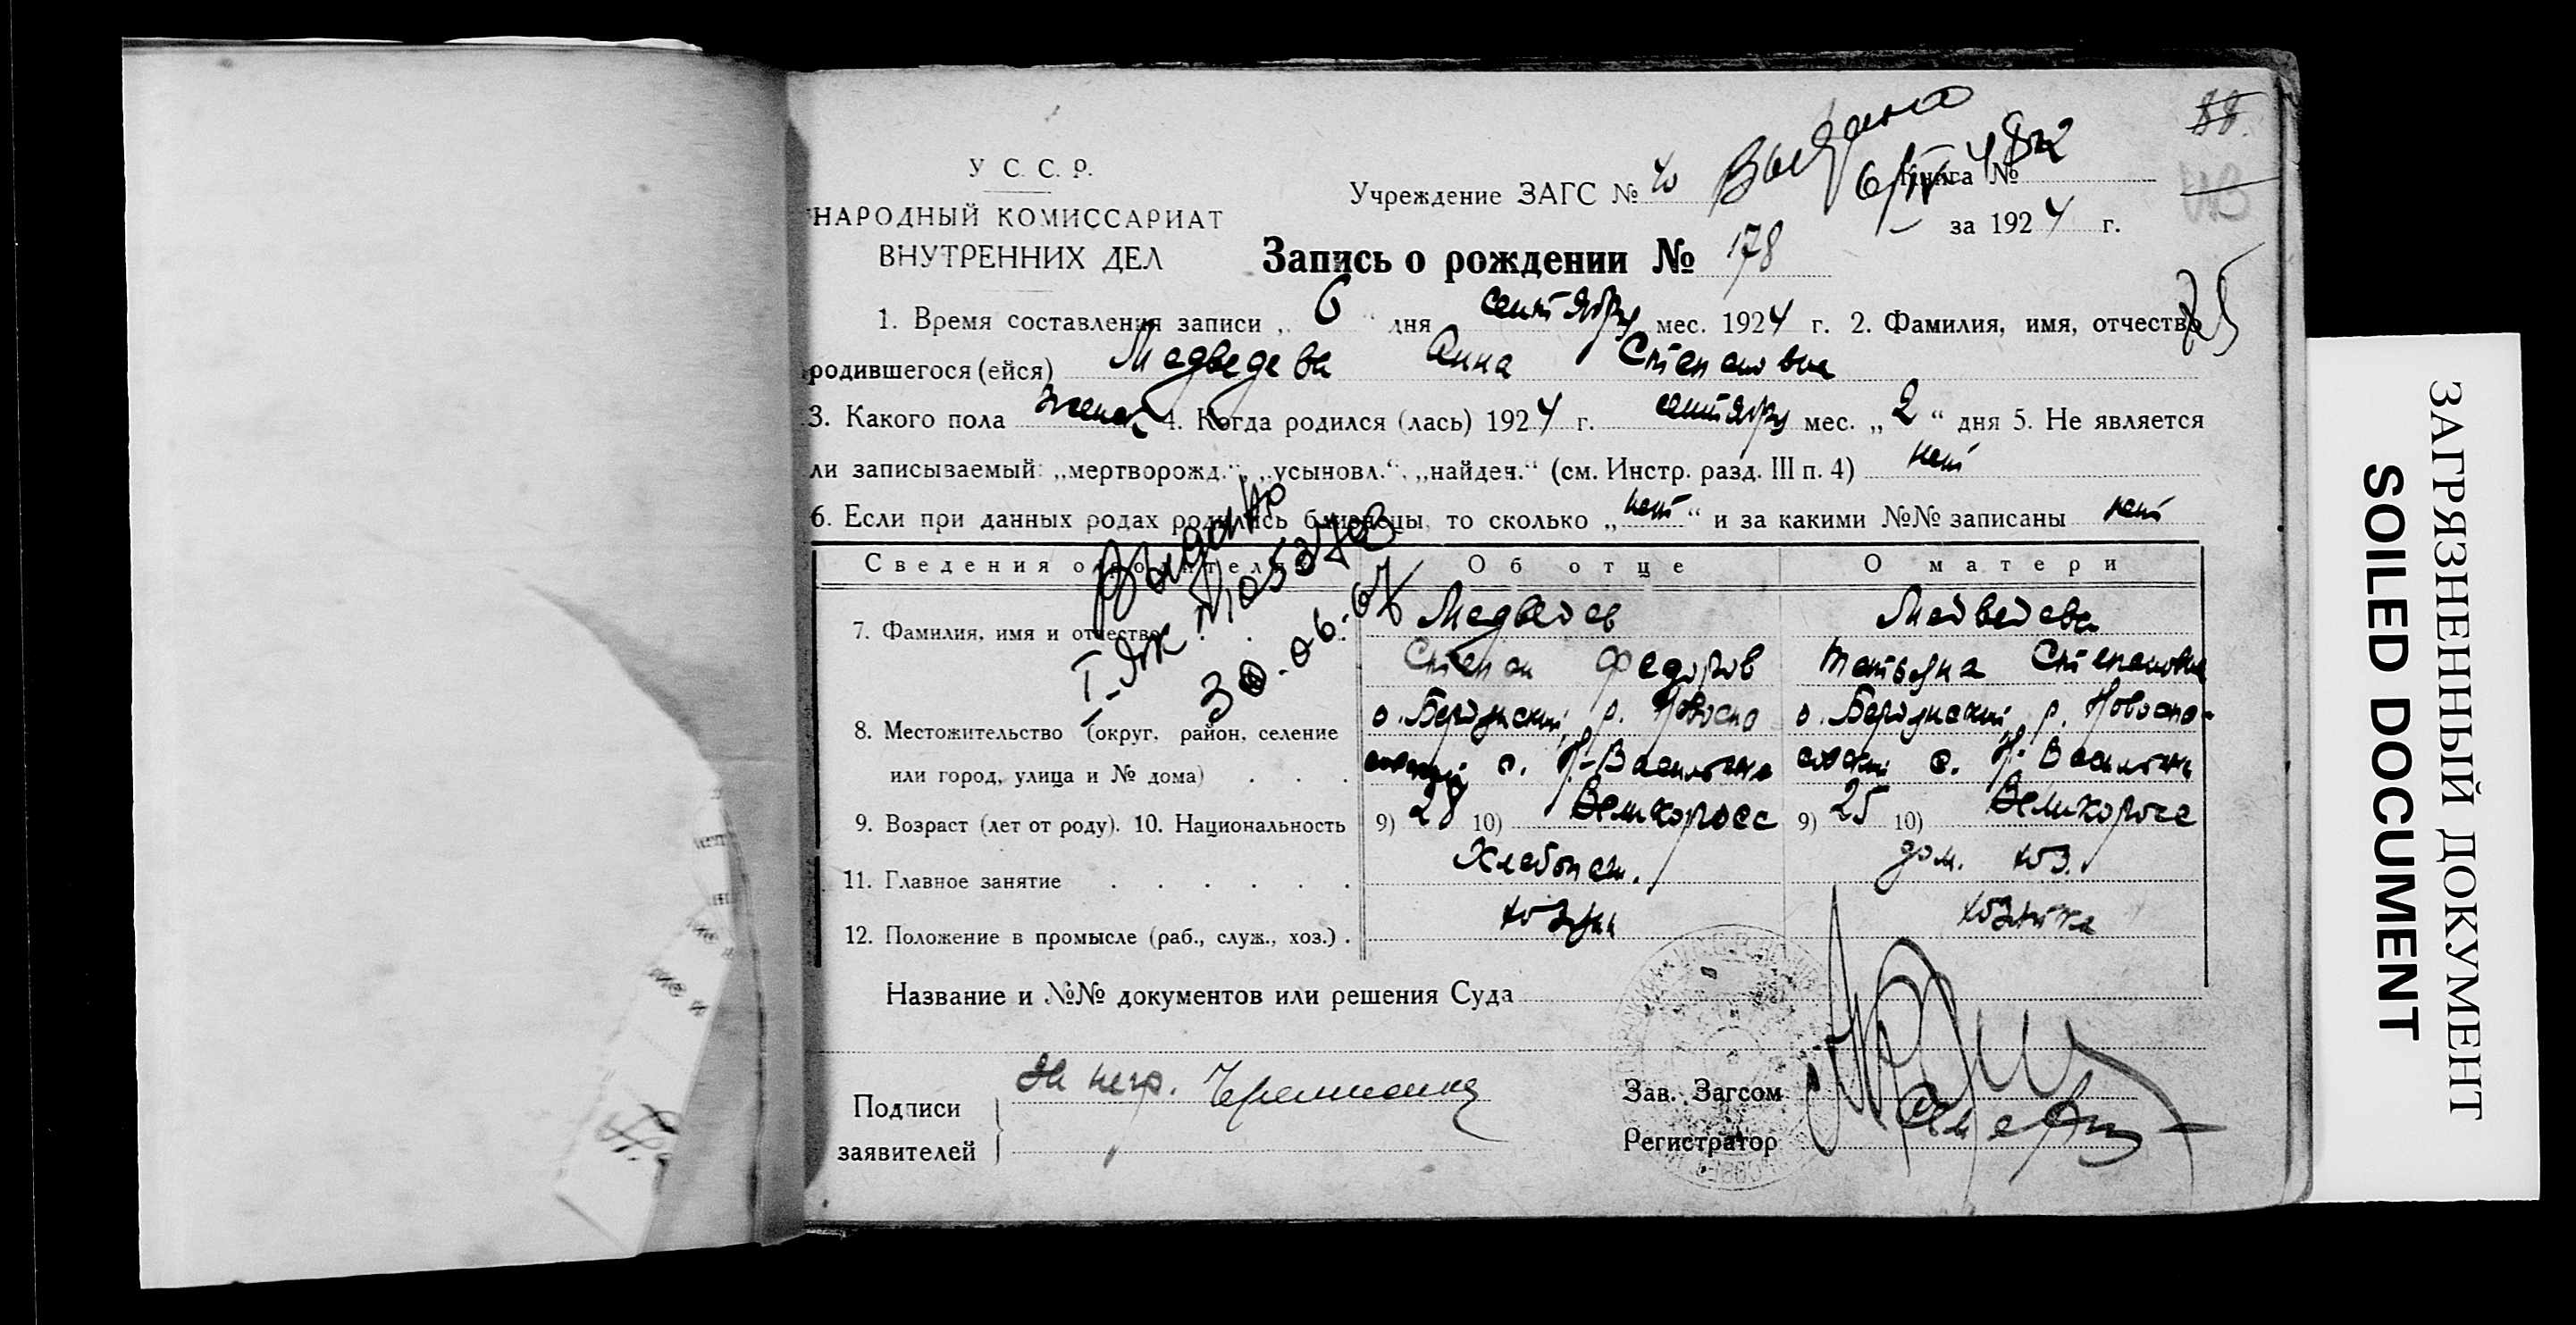 У С. С. Р.
НАРОДНЫЙ КОМИССАРИАТ
ВНУТРЕННИХ ДЕЛ
Учреждение ЗАГС №
Выдана
Книга №
за 1924 г.
88.
Запись о рождении № 178
75
1. Время составления записи „ 6 “ дня сентября мес. 1924 г. 2. Фамилия, имя, отчество
родившегося (ейся) Медведева Анна Степановна
3. Какого пола женск 4. Когда родился (лась) 1924 г. сентября мес. „ 2 “ дня 5. Не является
ли записываемый: „мертворожд.“, „усыновл.“, „найден.“ (см. Инстр. разд. III п. 4) нет
6. Если при данных родах родились близнецы, то сколько „ нет “ и за какими №№ записаны нет
Выдано
30.06.07
Сведения о родителях Об отце О матери
7. Фамилия, имя и отчество Медведев Медведева
Степан Федоров Татьяна Степановна
8. Местожительство (округ, район, селение о. Бердянский р. Новоспа о. Бердянский р. Новоспа-
или город, улица и № дома) сский с. Н-Васильевка сский с. Н-Васильевка
9. Возраст (лет от роду). 10. Национальность 9) 28 10) Великоросс 9) 25 10) Великоросс
11. Главное занятие Хлебопаш. дом. хоз.
12. Положение в промысле (раб., служ., хоз.) хозяин хозяйка
Название и №№ документов или решения Суда
Подписи
заявителей
За негр.
Зав. Загсом
Регистратор
ЗАГРЯЗНЕННЫЙ ДОКУМЕНТ
SOILED DOCUMENT